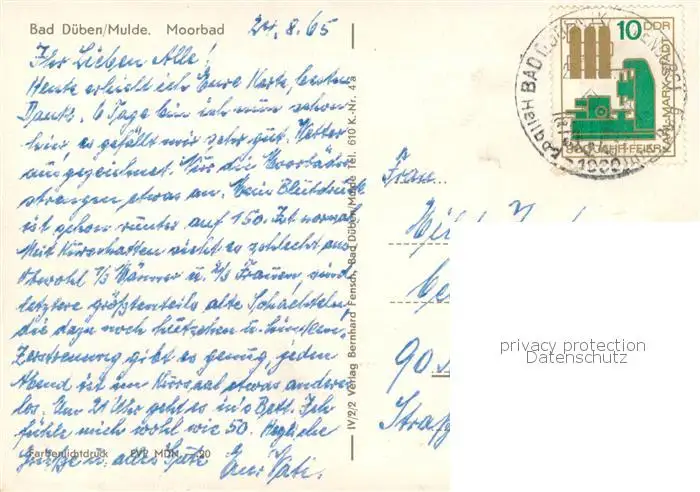 Bad Düben/Mulde. Moorbad
24.8.65
Ihr Lieben Alle!
Heute erhielt ich Eure Karte, besten
Dank. 6 Tage bin ich nun schon
hier es gefällt mir sehr gut. Wetter
ausgezeichnet. Nur die Moorbäder
strengen etwas an. Mein Blutdruck
ist schon runter auf 150. Ist normal
Mit Kurschatten sieht es schlecht aus
obwohl 1/3 Männer u. 2/3 Frauen, sind
letztere größtenteils alte Schachteln,
die dazu noch
Zerstreuung gibt es genug, jeden
Abend ist im Kursaal etwas anderes
los. Um 21 Uhr geht es in's Bett. Ich
fühle mich wohl wie 50. Herzliche
Grüße u. alles Gute
Euer Vati.
Farbenlichtdruck EVP MDN -.20
IV/2/2 Verlag Bernhard Fensch, Bad Düben/Mulde Tel. 610 K.-Nr. 4a
10 DDR
800 JAHRFEIER KARL-MARX-STADT
BAD DÜBEN
Frau
90
Straß
privacy protection
Datenschutz